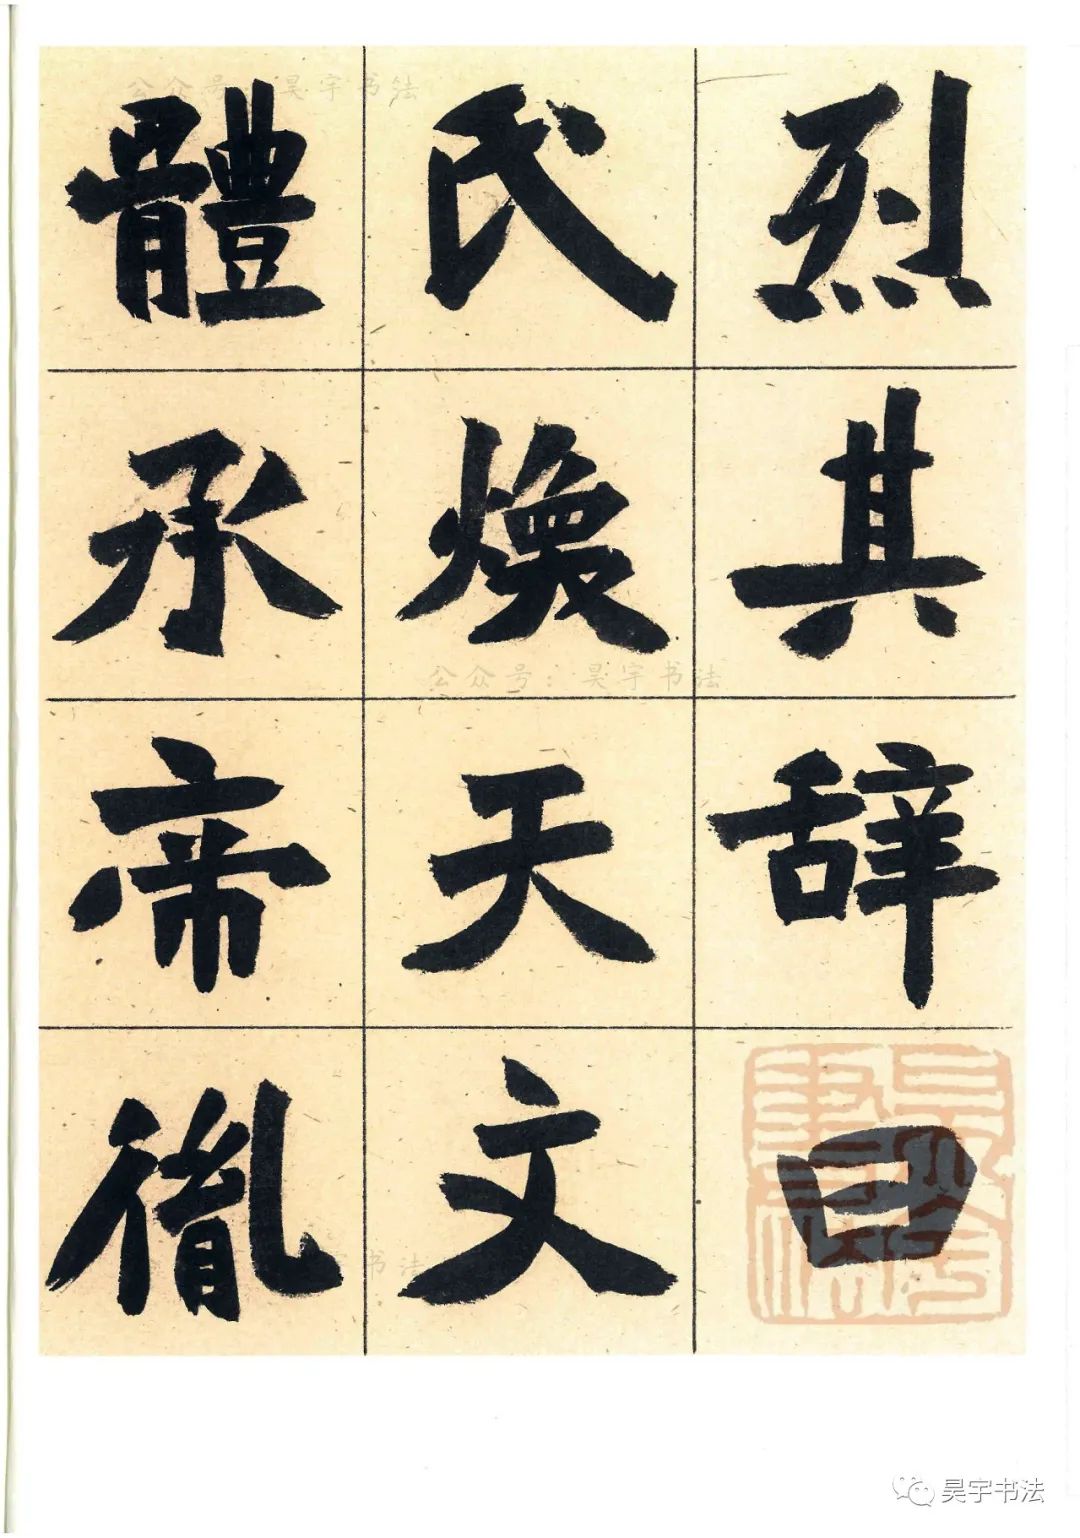 烈其辞曰
氏焕天文
體承帝胤
公众号:昊宇书法
公众号:昊宇书法
书法
昊宇书法